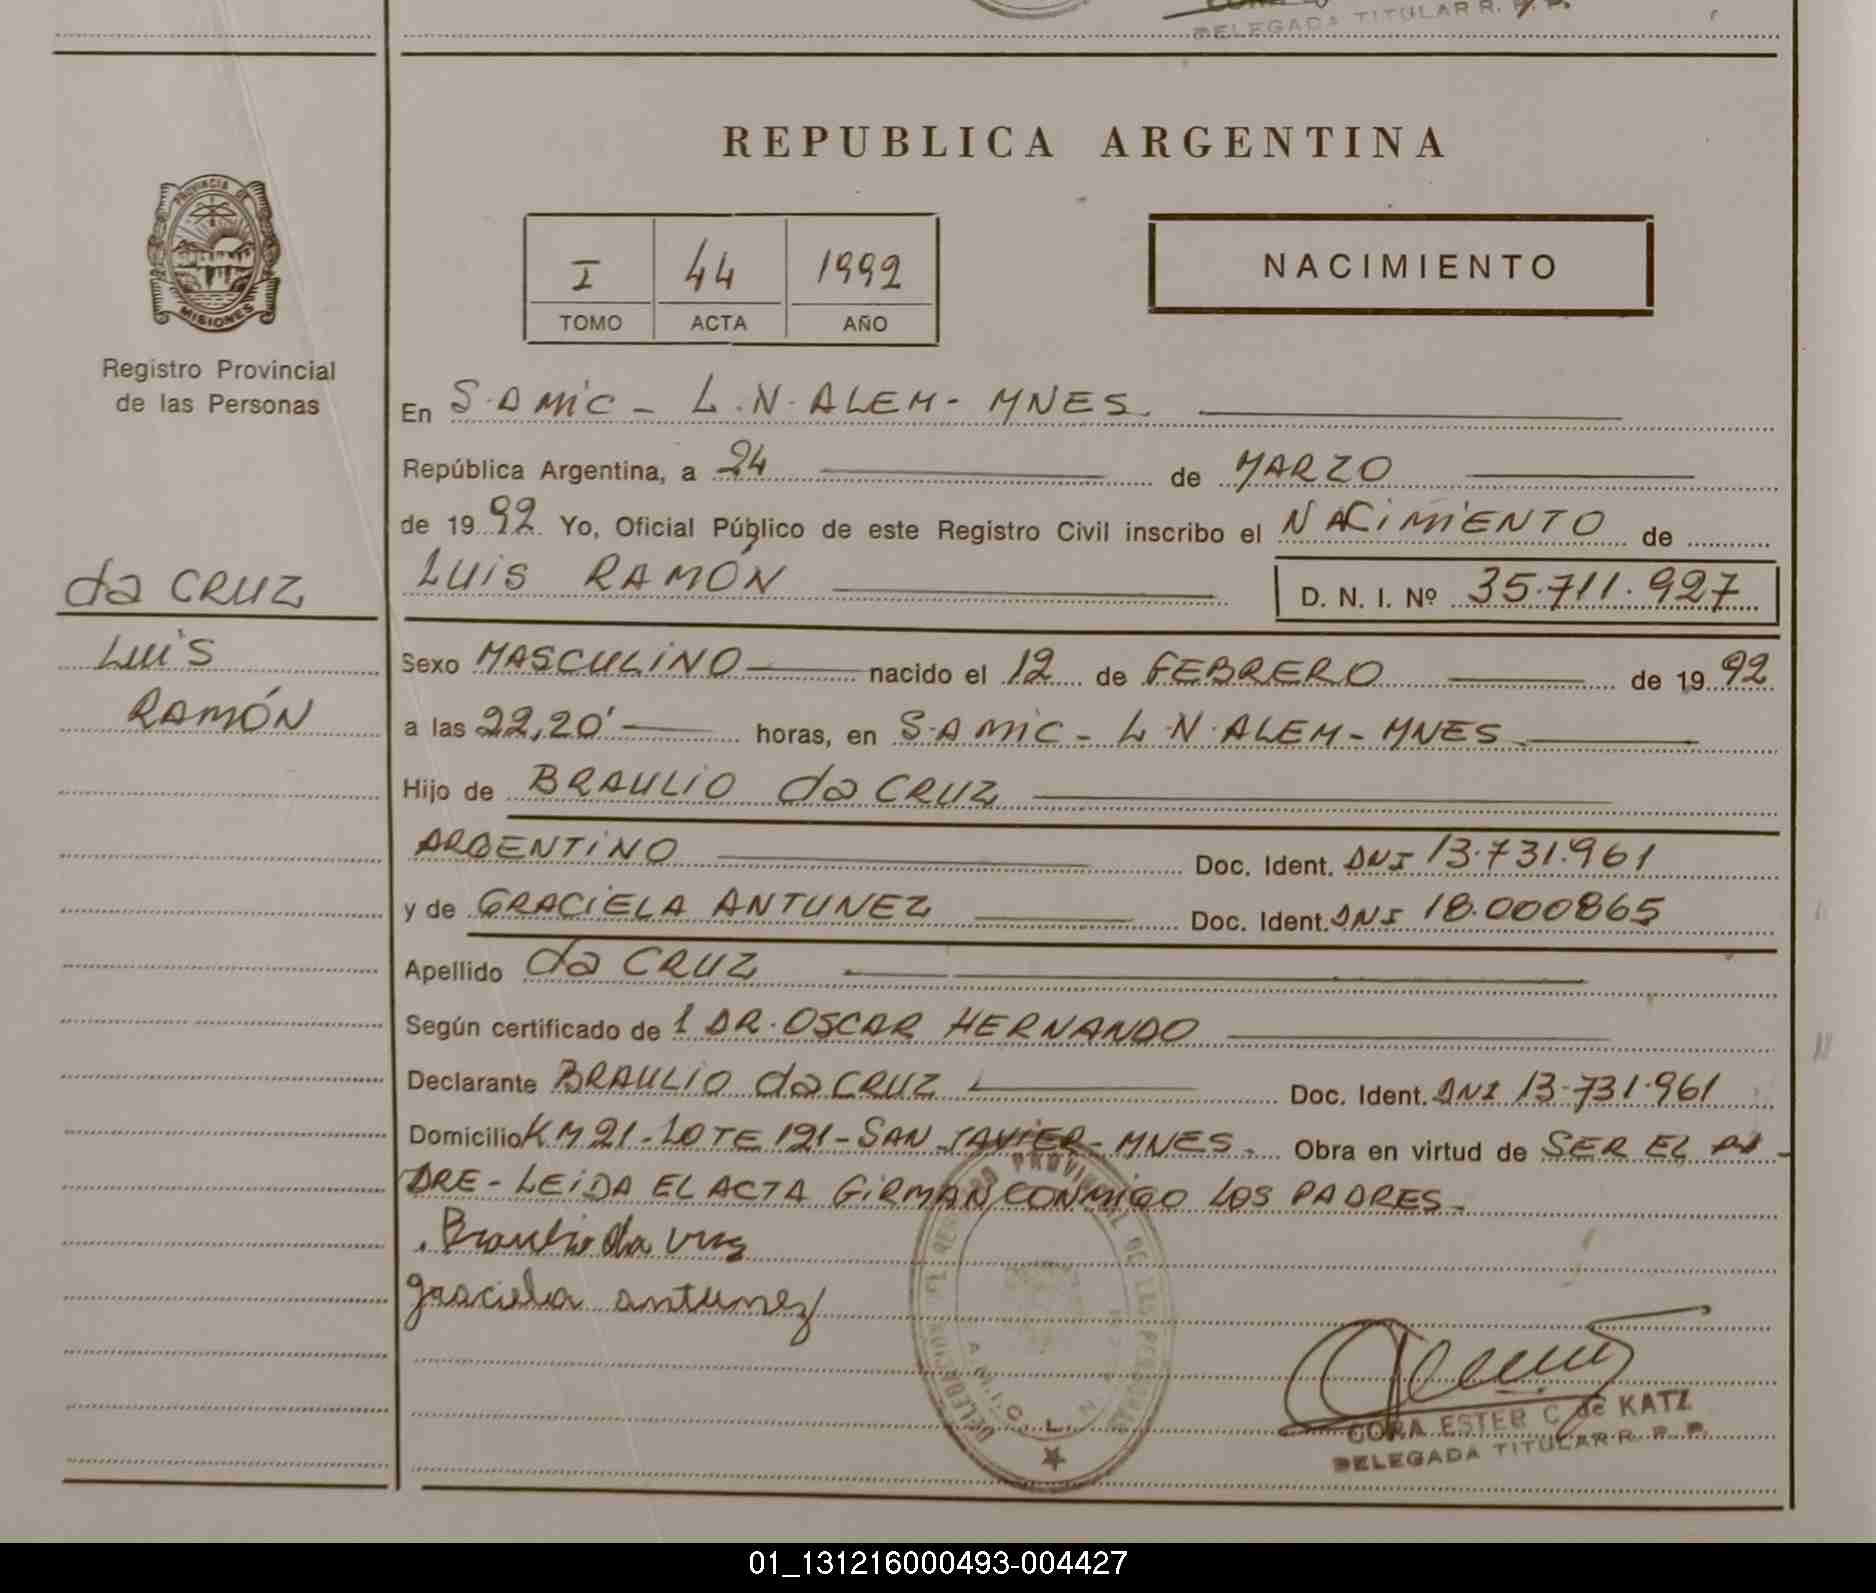 DELEGADA TITULAR R. P. P.
REPUBLICA ARGENTINA
PROVINCIA DE
MISIONES
Registro Provincial
de las Personas
I 44 1992
TOMO ACTA AÑO
NACIMIENTO
En S.AMIC - L.N.ALEM - MNES.
República Argentina, a 24 de MARZO
de 19 92 Yo, Oficial Público de este Registro Civil inscribo el NACIMIENTO de
da CRUZ
LUIS RAMÓN D. N. I. Nº 35.711.927
LUIS
RAMÓN
Sexo MASCULINO nacido el 12 de FEBRERO de 19 92
a las 22,20' horas, en S.AMIC - L.N.ALEM - MNES
Hijo de BRAULIO da CRUZ
ARGENTINO Doc. Ident. DNI 13.731.961
y de GRACIELA ANTUNEZ Doc. Ident. DNI 18.000865
Apellido da CRUZ
Según certificado de 1 DR. OSCAR HERNANDO
Declarante BRAULIO da CRUZ Doc. Ident. DNI 13.731.961
Domicilio KM 21 - LOTE 121 - SAN JAVIER - MNES. Obra en virtud de SER EL PA-
DRE - LEIDA EL ACTA FIRMAN CONMIGO LOS PADRES.
Braulio da Cruz
graciela antunez
CORA ESTER C. de KATZ
DELEGADA TITULAR R. P. P.
01_131216000493-004427